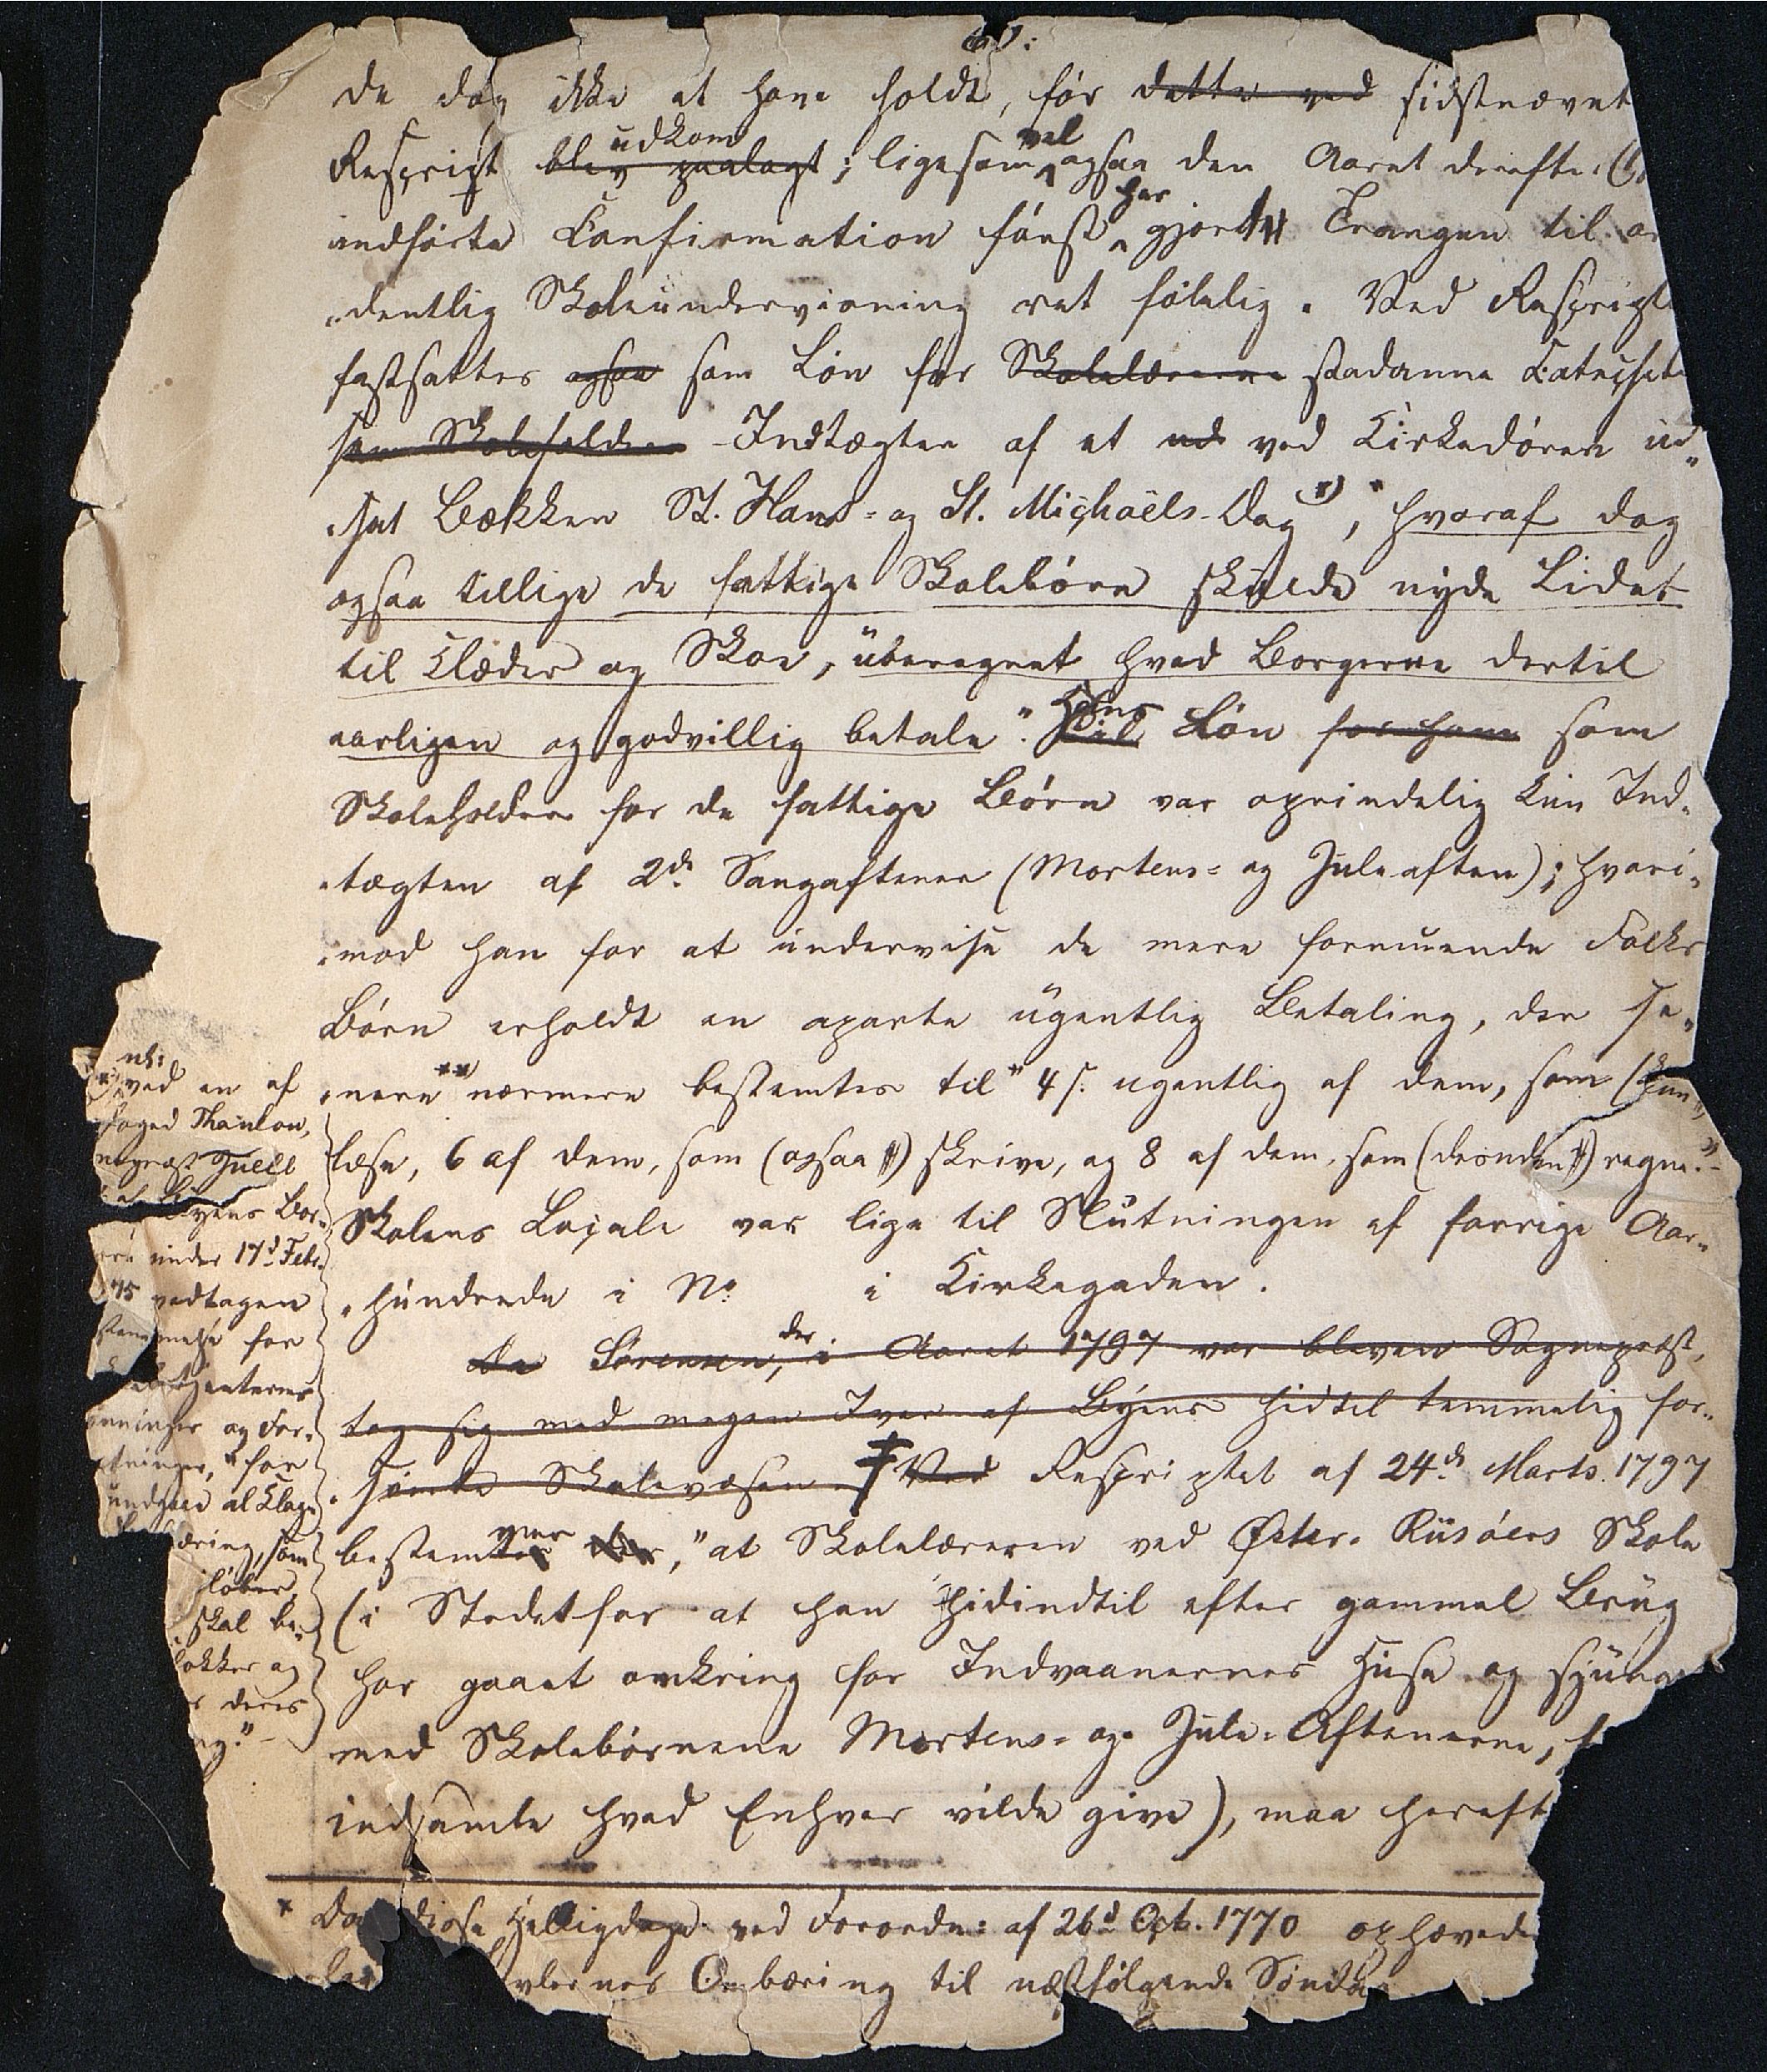 de dog ikke at have holdt, før dette ved sidstnævnt
Rescript blev paalagt udkom; ligesom vel ogsaa den Aaret derefter
indførte Confirmation først har gjort Trangen til or
dentlig Skoleundervisning ret følelig. Ved Rescript
fastsattes ogsaa som Løn for Skolelæreren saadanne Catechet
som Skoleholder Indtægten af et ud ved Kirkedøren ud„
„sat Bækken St. Hans- og St. Michaëls-Dag *), hvoraf dog
ogsaa tillige de fattige Skolebørn skulde nyde Lidet
til Klæder og Skoe, uberegnet hvad Borgerne dertil
aarligen og godvillig betale". Hans Løn for ham som
Skoleholder for de fattige Børn var oprindelig kun Ind„
„tægten af 2de Sangaftener (Mortens- og Juleaften); hvori„
„mod han for at undervise de mere formuende Folks
Børn erholdt en aparte ugentlig Betaling, der se„
„nere **) nærmere bestemtes til "4 s. ugentlig af dem, som (kun
læse, 6 af dem, som (ogsaa) skrive, og 8 af dem, som (desuden) regne."
Skolens Locale var lige til Slutningen af forrige Aar„
„hundrede i No i Kirkegaden.
da Sørensen, der i Aaret 1797 var bleven Sognepræst,
tog sig med megen Iver af Byens hidtil temmelig for„
„sømte Skolevæsen. Ved Rescriptet af 24de Marts 1797
bestemtes der, "at Skolelæreren ved Øster-Riisøers Skole
(i Stedetfor at han hidindtil efter gammel Brug
har gaaet omkring for Indvaanernes Huse og sjunge
med Skolebørnene Mortens- og Jule-Aftenerne,
indsamle hvad Enhver vilde give), maa hereft
* Da disse Helligdage ved Forordn: af 26d Oct. 1770 ophævede
vlernes Ombæring til næstfølgende Sønda
ved en af
foged Thaulow,
Juell
Byens Bor„
under 17d Febr.
75 vedtagen
melse for
enternes
og For„
for
undgaae al Klage
æring, som
løber,
skal be„
lokker og
deres